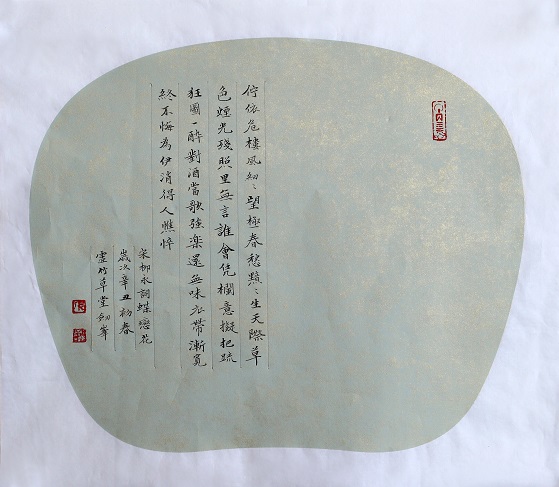 佇依危樓風細〻望極春愁黯〻生天際草
色煙光殘照里無言誰會凭欄意擬把疏
狂圖一醉對酒當歌強楽還無味衣帶漸寬
終不悔為伊消得人憔悴
宋柳永詞蝶戀花
歲次辛丑初春
虛竹草堂劍峯